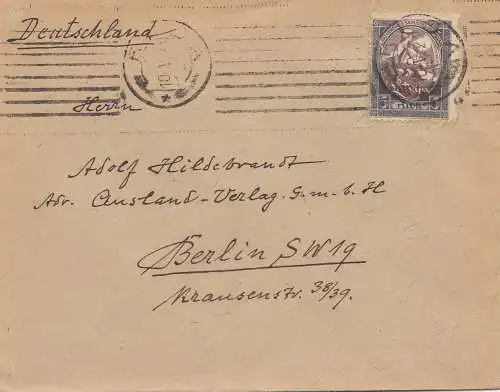 Deutschland
Herrn
Adolf Hildebrandt
Adr. Ausland-Verlag. G.m.b.H
Berlin SW19
Krausenstr. 38/39.